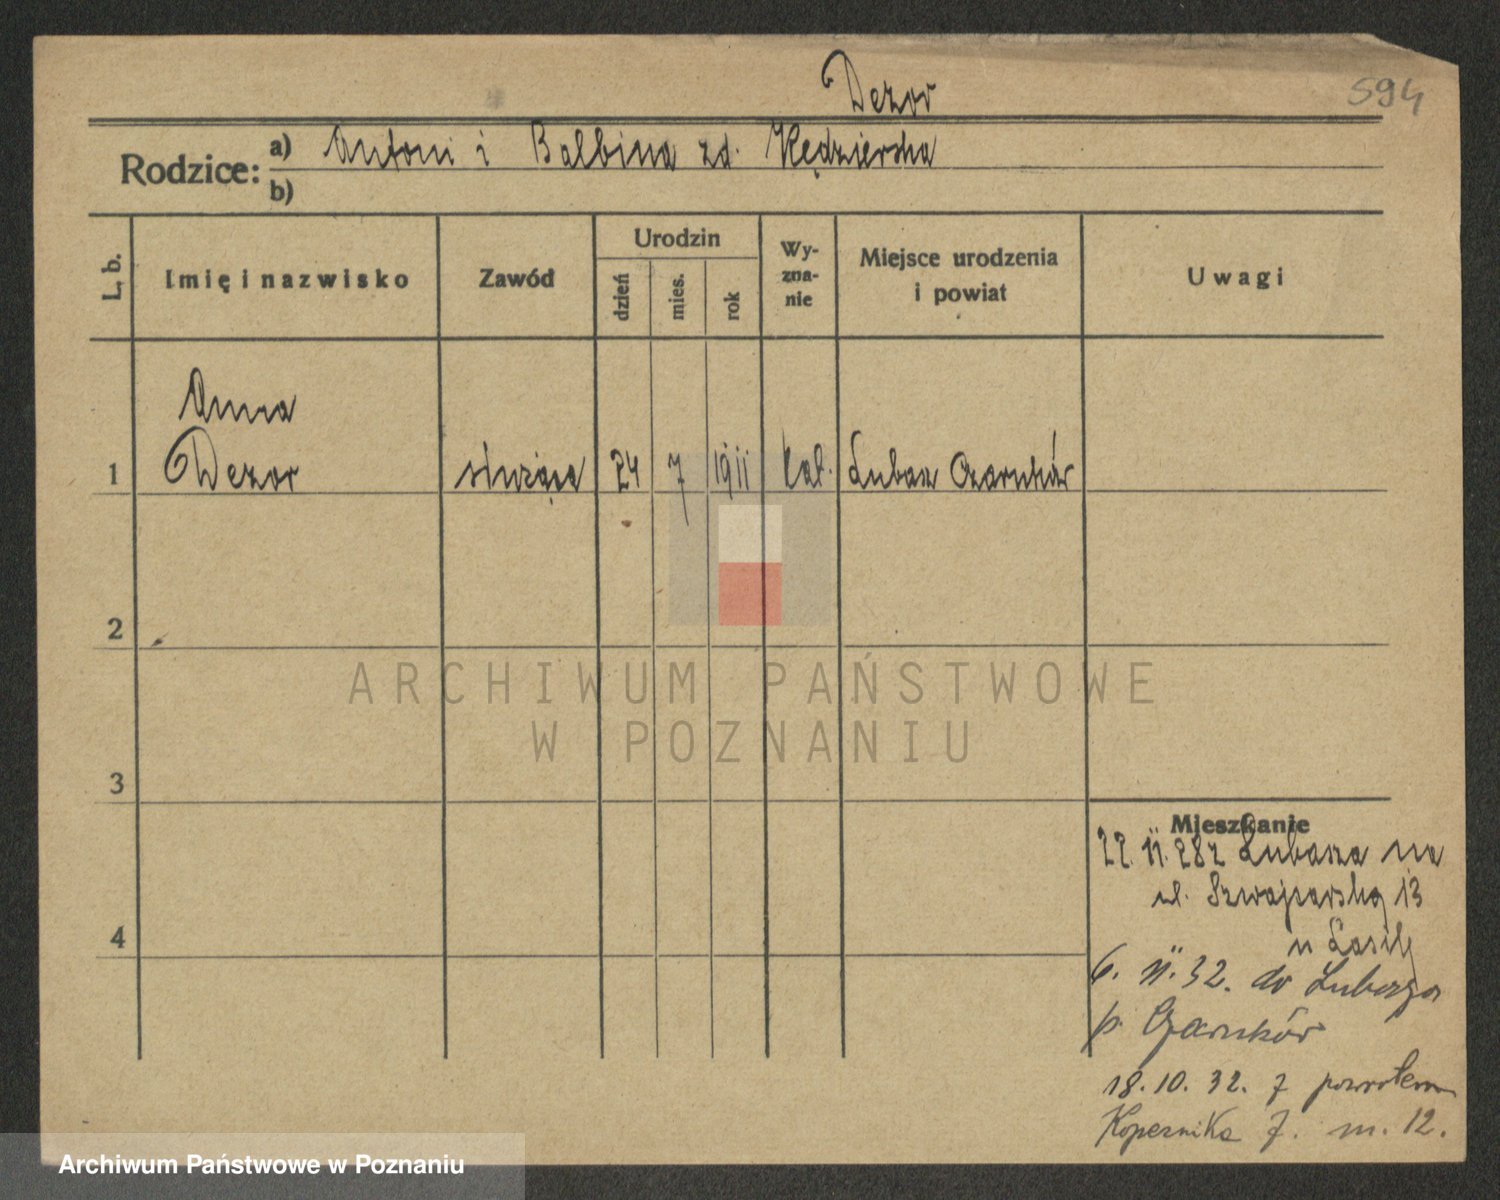 Dezor
594
Rodzice: a) Antoni i Balbina zd. Kędzierska
b)
L. b.
Imię i nazwisko
Zawód
Urodzin
dzień
mies.
rok
Wy-
zna-
nie
Miejsce urodzenia
i powiat
Uwagi
Anna
1 Dezor służąca 24 7 1911 kat. Lubasz Czarnków
2
3
4
ARCHIWUM PAŃSTWOWE
W POZNANIU
Mieszkanie
22. 11. 28 z Lubasza na
ul. Szwajcarską 13
u
6. 32. do Lubasza
p. Czarnków
18. 10. 32. z powrotem
Kopernika 7. m. 12.
Archiwum Państwowe w Poznaniu